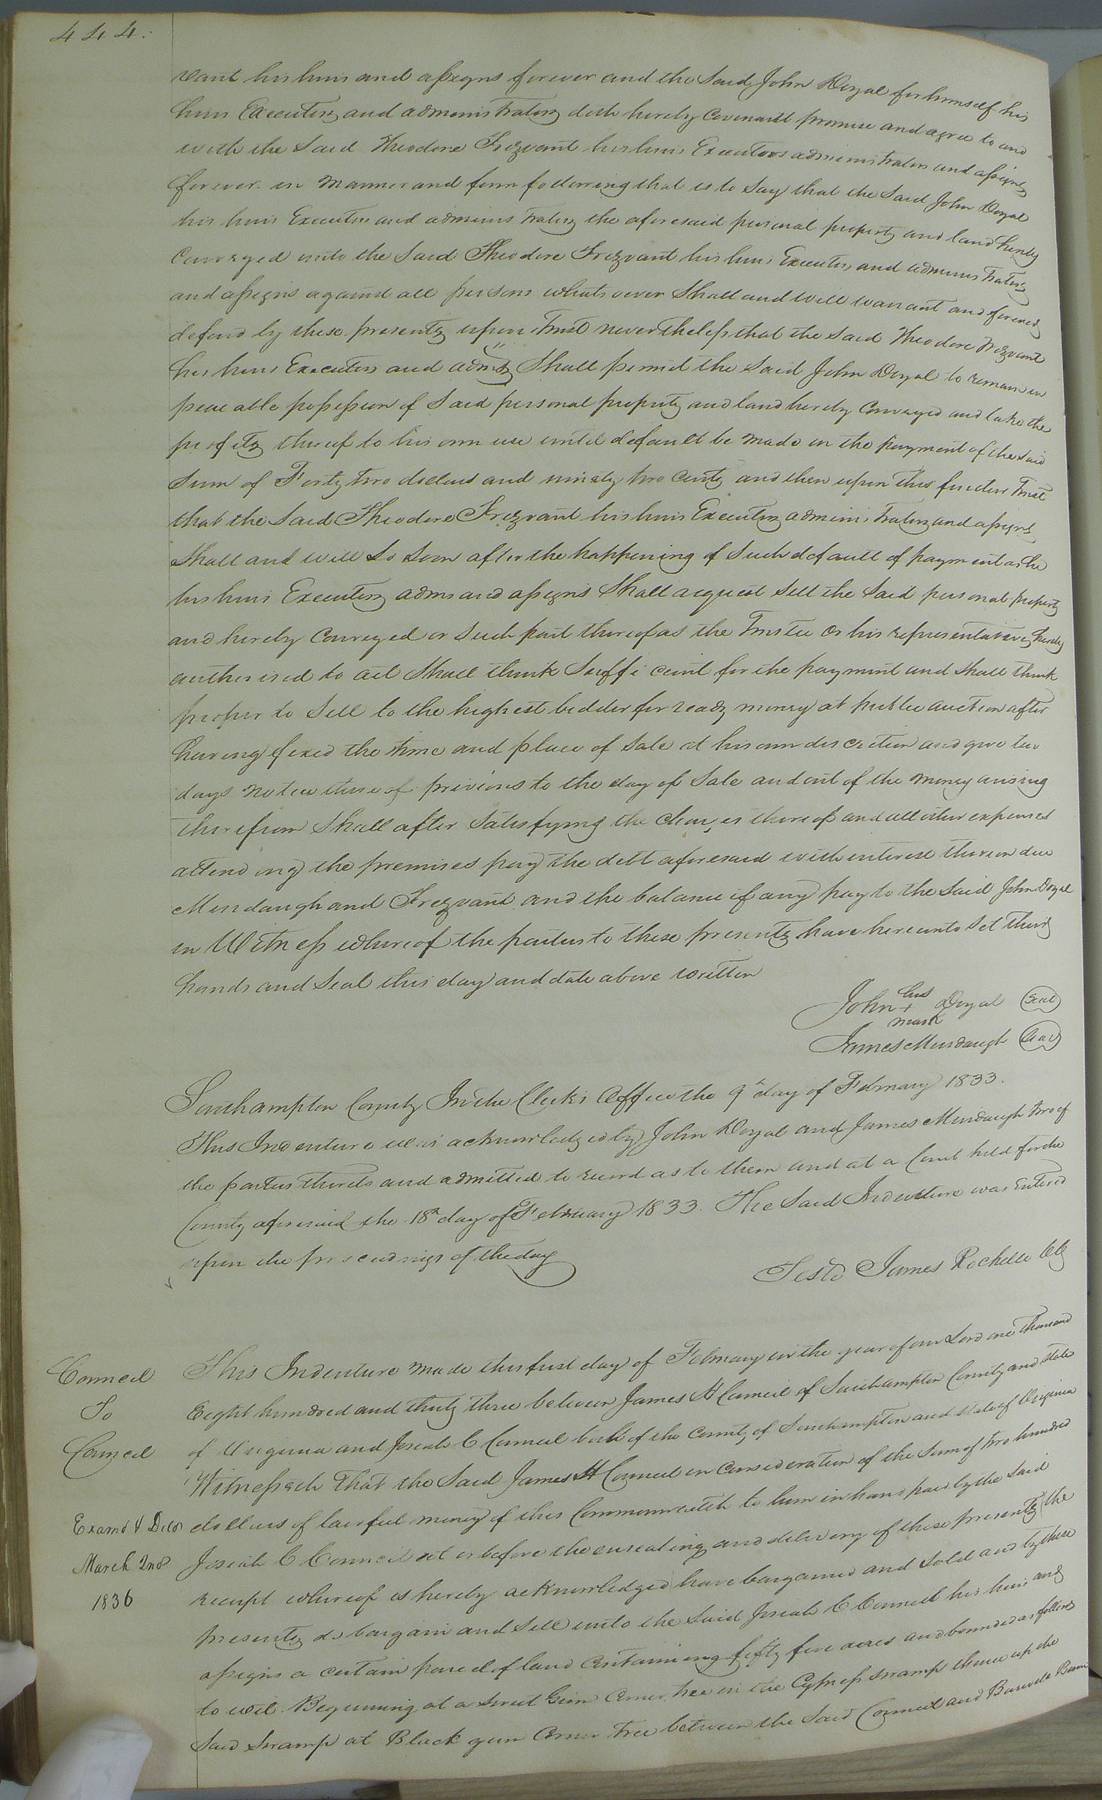 444.
vant his heirs and assigns forever and the Said John Doyal for himself his
heirs Executors and administrators doth hereby covenant promise and agree to and
with the Said Theodore Trezvant his heirs Executors administrators and assigns
forever in manner and form following that is to Say that the Said John Doyal
his heirs Executors and administrators the aforesaid personal property and land hereby
Conveyed unto the Said Theodore Trezvant his heirs Executors and administrators
and assigns against all persons whatsoever Shall and will warrant and forever
defend by these presents upon Trust nevertheless that the said Theodore Trezvant
his heirs Executors and admrs Shall permit the Said John Doyal to remain in
peaceable possession of Said personal property and land hereby Conveyed and take the
profits thereof to his own use until default be made in the payment of the said
Sum of Forty two dollars and ninety two cents and then upon this further Trust
that the Said Theodore Trezvant his heirs Executors administrators and assigns
Shall and will So Soon after the happening of Such default of payment as he
his heirs Executors adms and assigns Shall request Sell the Said personal property
and hereby Conveyed or Such part thereof as the Trustee or his representatives hereby
authorised to act Shall think Sufficient for the payment and Shall think
proper to Sell to the highest bidder for ready money at public auction after
having fixed the time and place of Sale at his own discretion and give ten
days notice thereof previous to the day of Sale and out of the money arising
therefrom Shall after Satisfying the charges thereof and all other expenses
attending the premises pay the debt aforesaid with interest thereon due
Murdaugh and Trezvant and the balance if any pay to the Said John Doyal
in Witness whereof the parties to these presents have hereunto Set their
hands and Seal this day and date above written
John his + mark Doyal Seal
James Murdaugh Seal
Southampton County In the Clerk's Office the 9th day of February 1833.
This Indenture was acknowledged by John Doyal and James Murdaugh two of
the parties thereto and admitted to record as to them and at a Court held for the
County aforesaid the 18th day of February 1833. The Said Indenture was entered
upon the proceedings of the day
Teste James Rochelle CC
Council
To
Council
Examd & Deld
March 2nd
1836
This Indenture made this first day of February in the year of our Lord one thousand
Eight hundred and thirty three between James H Council of Southampton County and State
of Virginia and Josiah C Council both of the County of Southampton and State of Virginia
Witnesseth That the Said James H Council in Consideration of the Sum of two hundred
dollars of lawful money of this Commonwealth to him in hand paid by the Said
Josiah C Council at or before the ensealing and delivery of these presents the
receipt whereof is hereby acknowledged have bargained and Sold and by these
presents do bargain and Sell unto the Said Josiah C Council his heirs and
assigns a certain parcel of land Containing fifty five acres and bounded as follows
to wit. Beginning at a Sweet Gum Corner tree in the Cypress swamp thence up the
Said Swamp at Black gum Corner Tree between the Said Council and